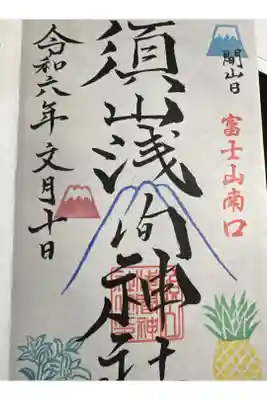 開山日
富士山南口
須山浅間神社
令和六年文月十日